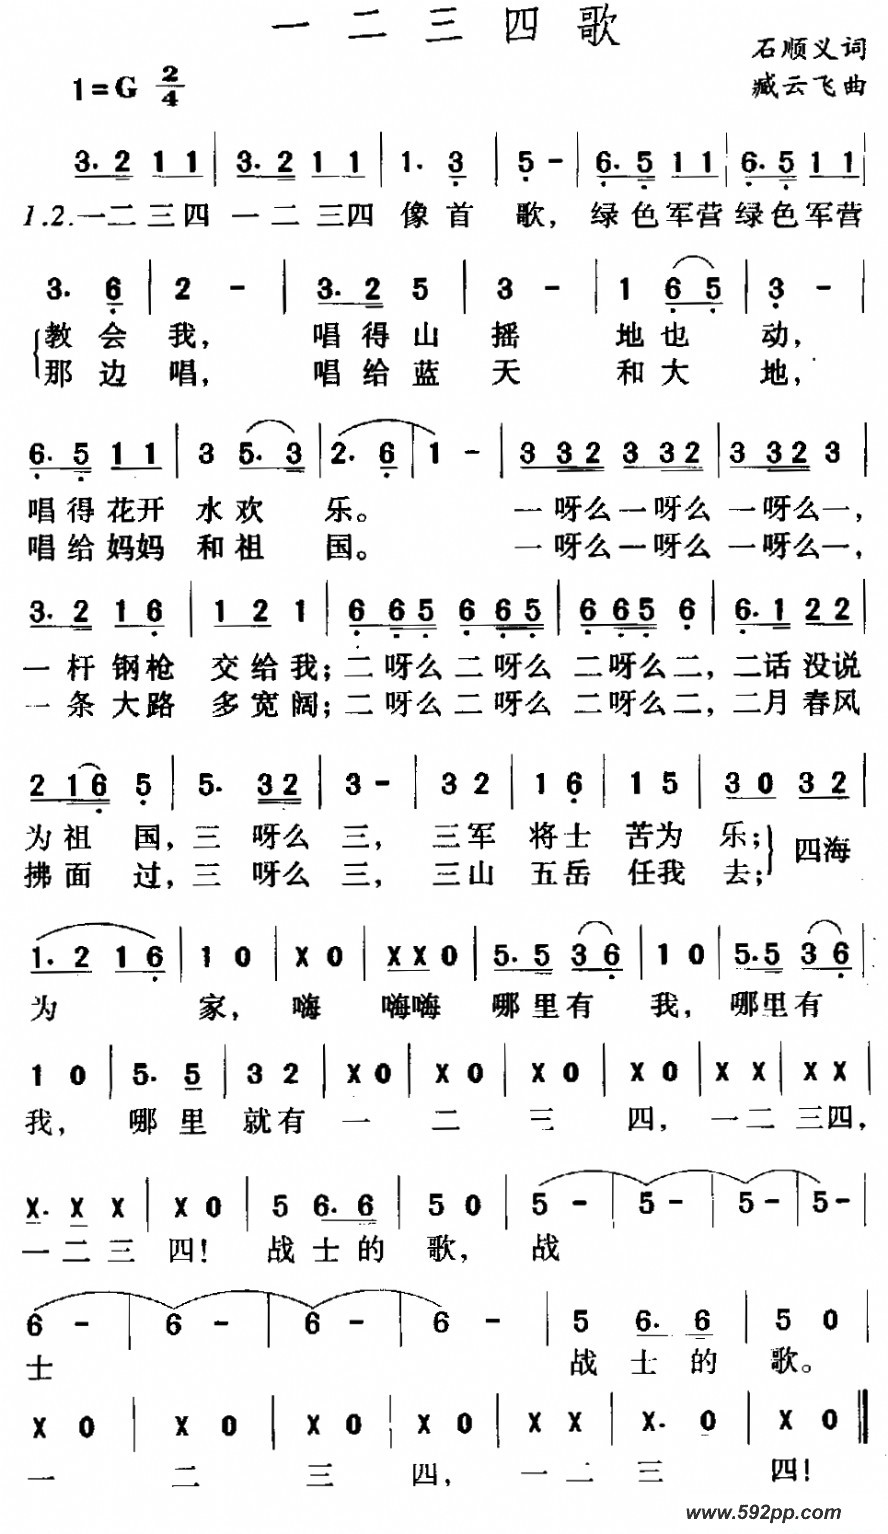 一 二 三 四 歌
石顺义词
1=G 2/4
臧云飞曲
3. 2 1 1 | 3. 2 1 1 | 1. 3 | 5 - | 6. 5 1 1 | 6. 5 1 1 |
1.2.一二 三四 一 二 三四 像 首 歌, 绿色军营 绿色军营
3. 6 | 2 - | 3. 2 5 | 3 - | 1 6 5 | 3 - |
教 会 我, 唱 得 山 摇 地 也 动,
那 边 唱, 唱 给 蓝 天 和 大 地,
6. 5 1 1 | 3 5. 3 | 2. 6 | 1 - | 3 3 2 3 3 2 | 3 3 2 3 |
唱 得 花开 水 欢 乐。 一 呀么 一 呀么 一 呀么 一,
唱 给 妈妈 和 祖 国。 一 呀么 一 呀么 一 呀么 一,
3. 2 1 6 | 1 2 1 | 6 6 5 6 6 5 | 6 6 5 6 | 6. 1 2 2 |
一 杆 钢 枪 交 给 我; 二 呀么 二 呀么 二 呀么 二, 二话 没说
一 条 大 路 多 宽 阔; 二 呀么 二 呀么 二 呀么 二, 二月 春风
2 1 6 5 | 5. 3 2 | 3 - | 3 2 | 1 6 | 1 5 | 3 0 3 2 |
为 祖 国, 三 呀么 三, 三 军 将 士 苦 为 乐; 四海
拂 面 过, 三 呀么 三, 三 山 五 岳 任 我 去;
1. 2 1 6 | 1 0 | X 0 | X X 0 | 5. 5 3 6 | 1 0 | 5. 5 3 6 |
为 家, 嗨 嗨嗨 哪里有 我, 哪里有
1 0 | 5. 5 | 3 2 | X 0 | X 0 | X 0 | X 0 | X X | X X |
我, 哪 里 就 有 一 二 三 四, 一 二 三 四,
X. X X | X 0 | 5 6. 6 | 5 0 | 5 - | 5 - | 5 - | 5 - |
一 二 三 四! 战 士 的 歌, 战
6 - | 6 - | 6 - | 6 - | 5 6. 6 | 5 0 |
士 战 士 的 歌。
X 0 | X 0 | X 0 | X 0 | X X | X. 0 | X 0 ‖
一 二 三 四, 一 二 三 四!
www.592pp.com